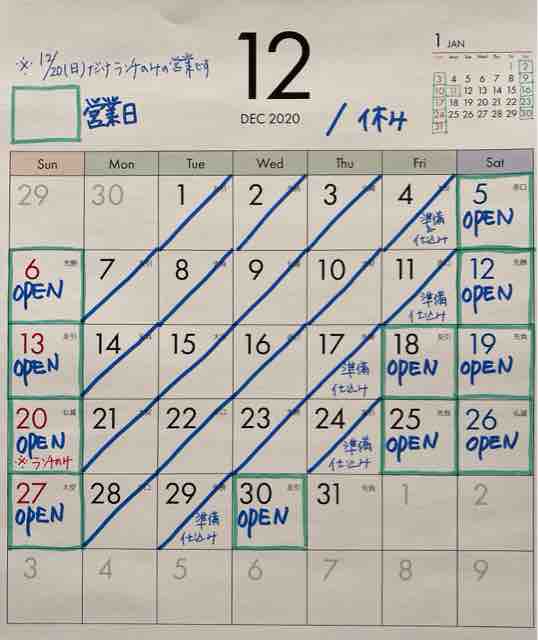 12
DEC 2020
※ 12/20(日)だけランチのみの営業です
営業日
/ 休み
1 JAN
3 4 5 6 7 8 9
10 11 12 13 14 15 16
17 18 19 20 21 22 23
24 25 26 27 28 29 30
31
Sun Mon Tue Wed Thu Fri Sat
29 30 1 2 3 4 5
準備
仕込み
OPEN
6 7 8 9 10 11 12
先勝
OPEN
準備
仕込み
OPEN
13 14 15 16 17 18 19
OPEN
準備
仕込み
OPEN
OPEN
20 21 22 23 24 25 26
仏滅
OPEN
※ランチのみ
準備
仕込み
OPEN
OPEN
27 28 29 30 31 1 2
大安
OPEN
準備
仕込み
OPEN
3 4 5 6 7 8 9